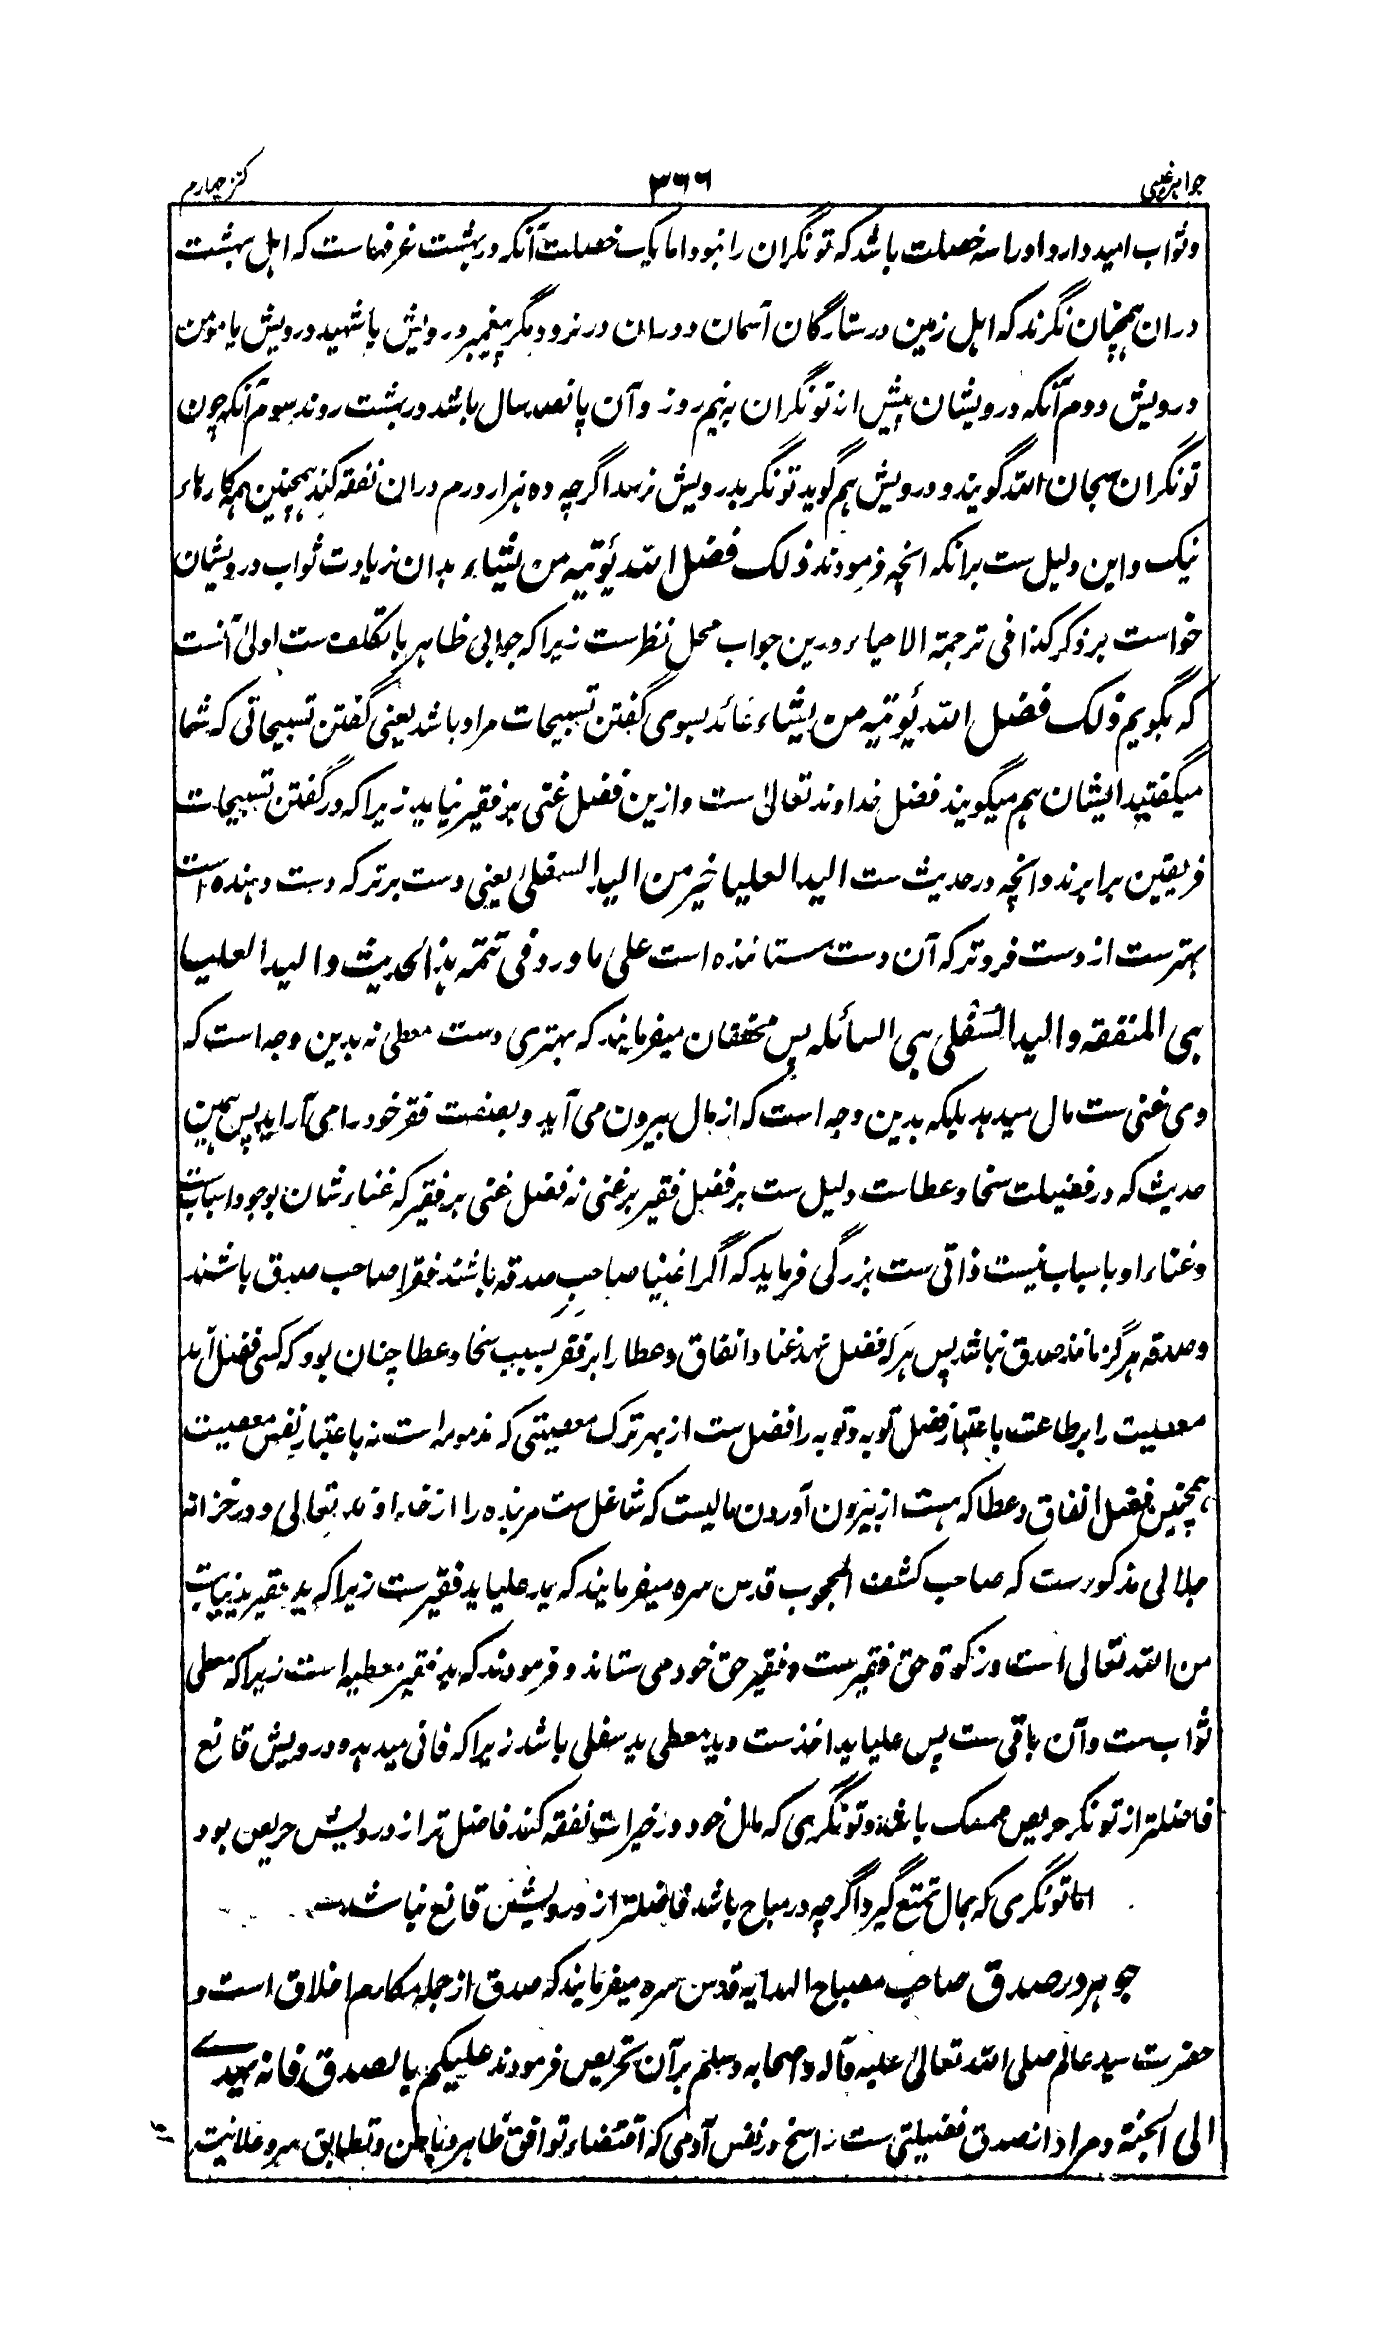 جواهر غیبی ۳۶۶ کنز چهارم
وثواب امید دارد و اورا سه خصلت باشد که تونگران را نبود اما یک خصلت آنکه در بهشت غرفهاست که اہل بہشت
دران ہمچنان نگرند که اہل زمین در ستارگان آسمان و دران در نرود مگر پیغمبر درویش یا شہید درویش یا مومن
درویش دوم آنکه درویشان پیش از تونگران بہ نیم روز و آن پانصد سال باشد در بہشت روند سوم آنکه چون
تونگران سبحان اللہ گویند و درویش ہم گوید تونگر بدرویش نرسد اگرچہ دہ ہزار درم دران نفقہ کند ہمچنین ہمہ کارہاء
نیک و این دلیل ست برانکہ آنچہ فرمودند ذلک فضل اللہ یؤتیہ من یشاء بدان زیادت ثواب درویشان
خواست بر ذکر کذا فی ترجمۃ الاحیاء و درین جواب محل نظر ست زیرا کہ جوابی ظاہر با تکلف ست اولیٰ آنست
کہ بگویم ذلک فضل اللہ یؤتیہ من یشاء عائد بسوی گفتن تسبیحات مراد باشد یعنی گفتن تسبیحاتی کہ شما
میگفتید ایشان ہم میگویند فضل خداوند تعالیٰ ست و ازین فضل غنی بر فقیر نیاید زیرا کہ در گفتن تسبیحات
فریقین برابرند و آنچہ در حدیث ست الید العلیا خیر من الید السفلیٰ یعنی دست برتر کہ دست دہندہ است
بہتر ست از دست فروتر کہ آن دست ستانندہ است علی ما ورد فی تتمہ ہذا الحدیث و الید العلیا
ہی المنفقہ والید السفلی ہی السائلہ پس محققان میفرمایند کہ بہتری دست معطی نہ بدین وجہ است کہ
وی غنی ست مال میدہد بلکہ بدین وجہ است کہ از مال بیرون می آید و بصفت فقر خود را می آراید پس ہمین
حدیث کہ در فضیلت سخا و عطاست دلیل ست بر فضل فقیر بر غنی نہ فضل غنی بر فقیر کہ غناء شان بوجود اسباب ست
و غناء او با سباب نیست ذاتی ست بزرگی فرماید کہ اگر اغنیا صاحب صدقہ باشند فقرا صاحب صدق باشند
و صدقہ ہرگز مانند صدق نباشد پس ہر کہ فضل نہد غنا و انفاق و عطا را بر فقر بسبب سخا و عطا چنان بود کہ کسی فضل نہد
معصیت را بر طاعت باعتبار فضل توبہ و توبہ را فضل ست از بہر ترک معصیتی کہ مذمومہ است نہ باعتبار نفس معصیت
ہمچنین فضل انفاق و عطا کہ ہست از بیرون آوردن مالیست کہ شاغل ست مر بندہ را از خداوند تعالی و در خزانہ
جلالی مذکور ست کہ صاحب کشف المحجوب قدس سرہ میفرمایند کہ ید علیا ید فقیر ست زیرا کہ ید فقیر ید نیابت
من اللہ تعالی است و زکوۃ حق فقیر ست و فقیر حق خود می ستاند و فرمودند کہ ید فقیر معطیہ است زیرا کہ معطی
ثواب ست و آن باقی ست پس علیا ید اخذ ست و ید معطی ید سفلی باشد زیرا کہ فانی میدہد و درویش قانع
فاضلتر از تونگر حریص ممسک باشد و تونگری کہ مال خود در خیرات نفقہ کند فاضل تر از درویش حریص بود
اما تونگری کہ بمال تمتع گیرد اگرچہ در مباح باشد فاضلتر از درویش قانع نباشد
جوہر در صدق صاحب مصباح الہدایہ قدس سرہ میفرمایند کہ صدق از جملہ مکارم اخلاق است و
حضرت سید عالم صلی اللہ تعالیٰ علیہ وآلہ واصحابہ وسلم بر آن تحریص فرمودند علیکم بالصدق فانہ یہدی
الی الجنۃ و مراد از صدق فضیلتی ست راسخ در نفس آدمی کہ اقتضاء توافق ظاہر و باطن و تطابق سر و علانیت